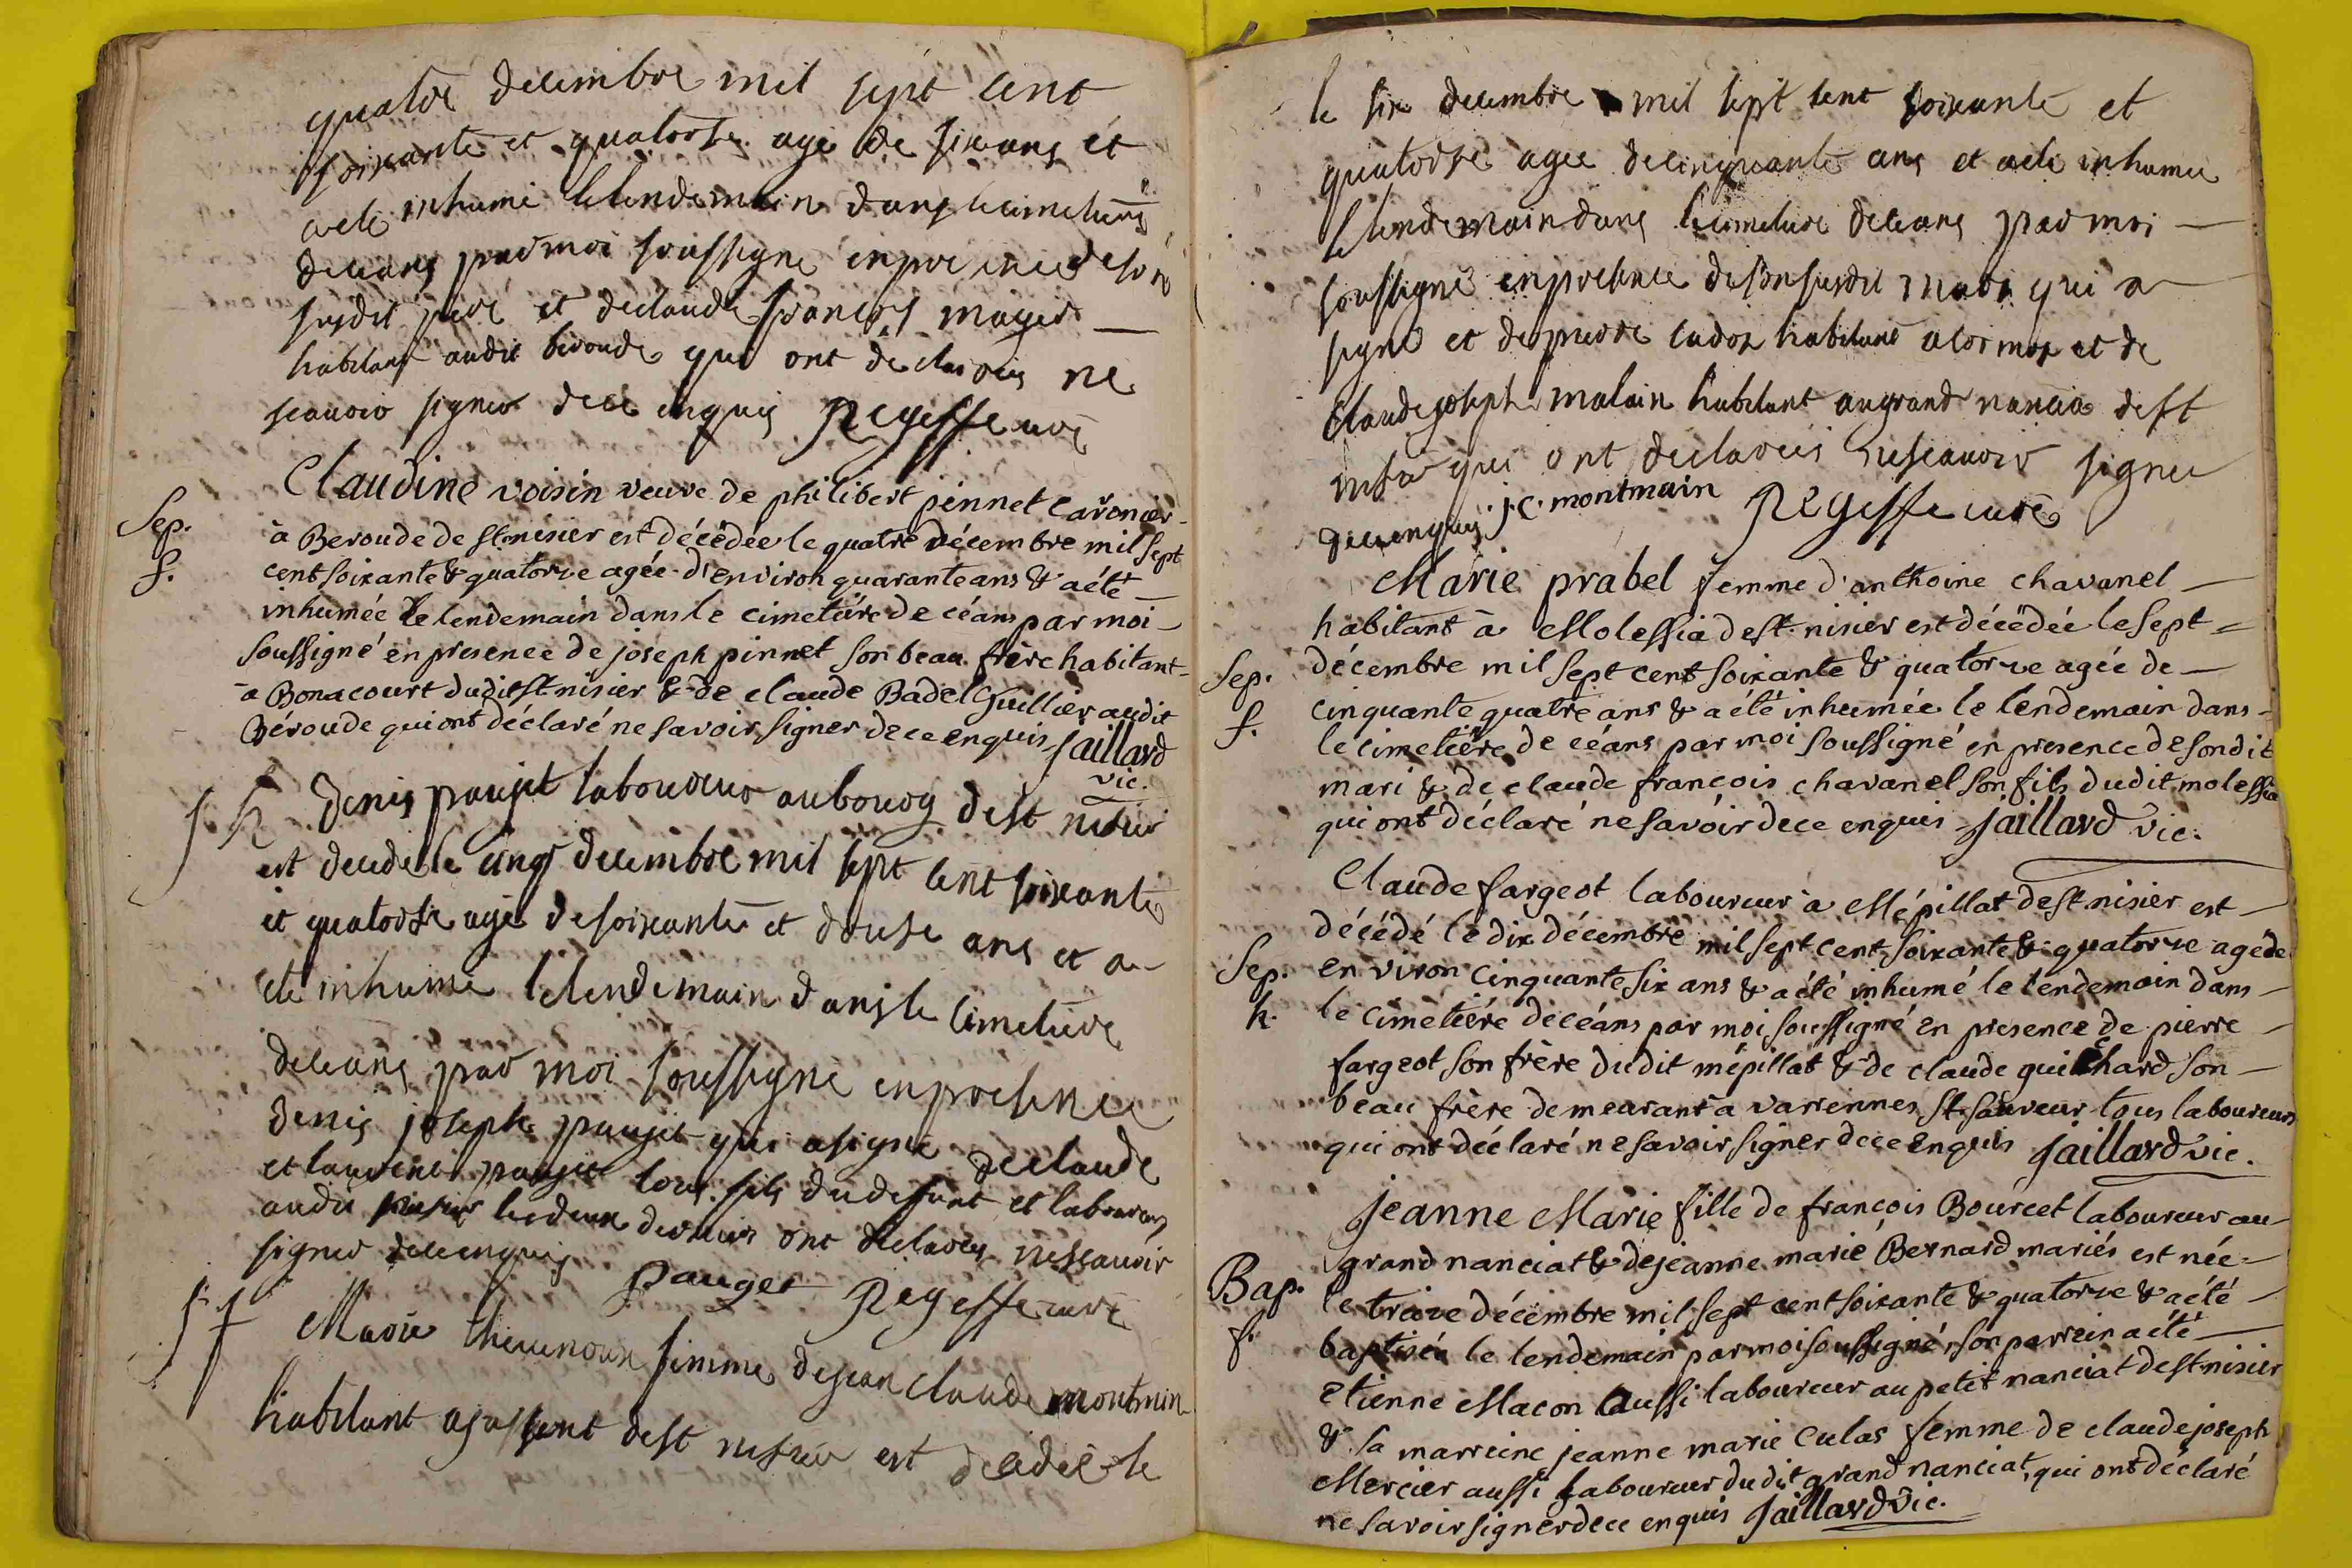 quatre decembre mil sept cent
soixante et quatorse agé de six ans et
aeté inhumé lelendemain dans lecimetiere
deceans par moi soussigné enpresence de son
susdit pere et declaude francois mager
habitant audit béroude qui ont declarés ne
scauoir signer dece enquis Regeffe curé
Claudine voisin veuve de philibert pinnet Caronier
Sep.
f.
à Beroude de St nisier est décédée le quatre décembre mil sept
cent soixante & quatorze agée d'environ quarante ans & aété
inhumée le lendemain dans le cimetiére de céans par moi
soussigné en presence de joseph pinnet son beau frère habitant
à Bonacourt dudit St nisier & de claude Badel Guillier audit
Béroude qui ont déclaré ne savoir signer dece enquis Jaillard
vic.
S h
denis paujet laboureur aubourg de st nisier
est decedé le cinq decembre mil sept cent soixante
et quatorse agé desoixante et douse ans et a
eté inhumé lelendemain dans le cimetiere
deceans par moi soussigné enpresence
denis joseph paujet qui asigné declaude
et laurent paujet tous fils dudefunt et laboureurs
audit nisier lesdeux derniers ont declarés nesscauoir
signer deceenquis Pauget Regeffe curé
S f
Marie theuenoux femme dejean claude montmin
habitant ajassent de st nisier est decedée le
le six decembre mil sept cent soixante et
quatorse agee decinquante ans et aeté inhumee
lelendemain dans lecimetiere deceans par moi
soussigné enpresence desonsusdit mari qui a
signé et depierre cadoz habitant alormoz et de
Claude joseph malain habitant augrand nancia de st
nisier qui ont declarés nescauoir signer
deceenquis j.c. montmain Regeffe curé
Marie prabel femme d'anthoine chavanel
habitant à Molessia de st nisier est décédée le sept
Sep.
f.
décembre mil sept cent soixante & quatorze agée de
cinquante quatre ans & a été inhumée le lendemain dans
le cimetiére de céans par moi soussigné en presence de son dit
mari & de claude francois chavanel son fils dudit molessia
qui ont déclaré ne savoir dece enquis Jaillard vic.
Claude fargeot laboureur à Mépillat de st nisier est
décédé le dix décembre mil sept cent soixante & quatorze agé de
Sep.
h.
environ cinquante six ans & a été inhumé le lendemain dans
le cimetiére de céans par moi soussigné en presence de pierre
fargeot son frère dudit mépillat & de claude guichard son
beau frère demeurant à varrennes st sauveur tous laboureurs
qui ont déclaré ne savoir signer dece enquis Jaillard vic.
Jeanne Marie fille de francois Bourcet laboureur au
grand nanciat & de jeanne marie Bernard mariés est née
Bap.
f.
le treize décembre mil sept cent soixante & quatorze & a été
baptisée le lendemain par moi soussigné, son parrein a été
Etienne Macon aussi laboureur au petit nanciat de st nisier
& sa marreine jeanne marie Culas femme de claude joseph
Mercier aussi laboureur dudit grand nanciat, qui ont déclaré
ne savoir signer dece enquis Jaillard vic.